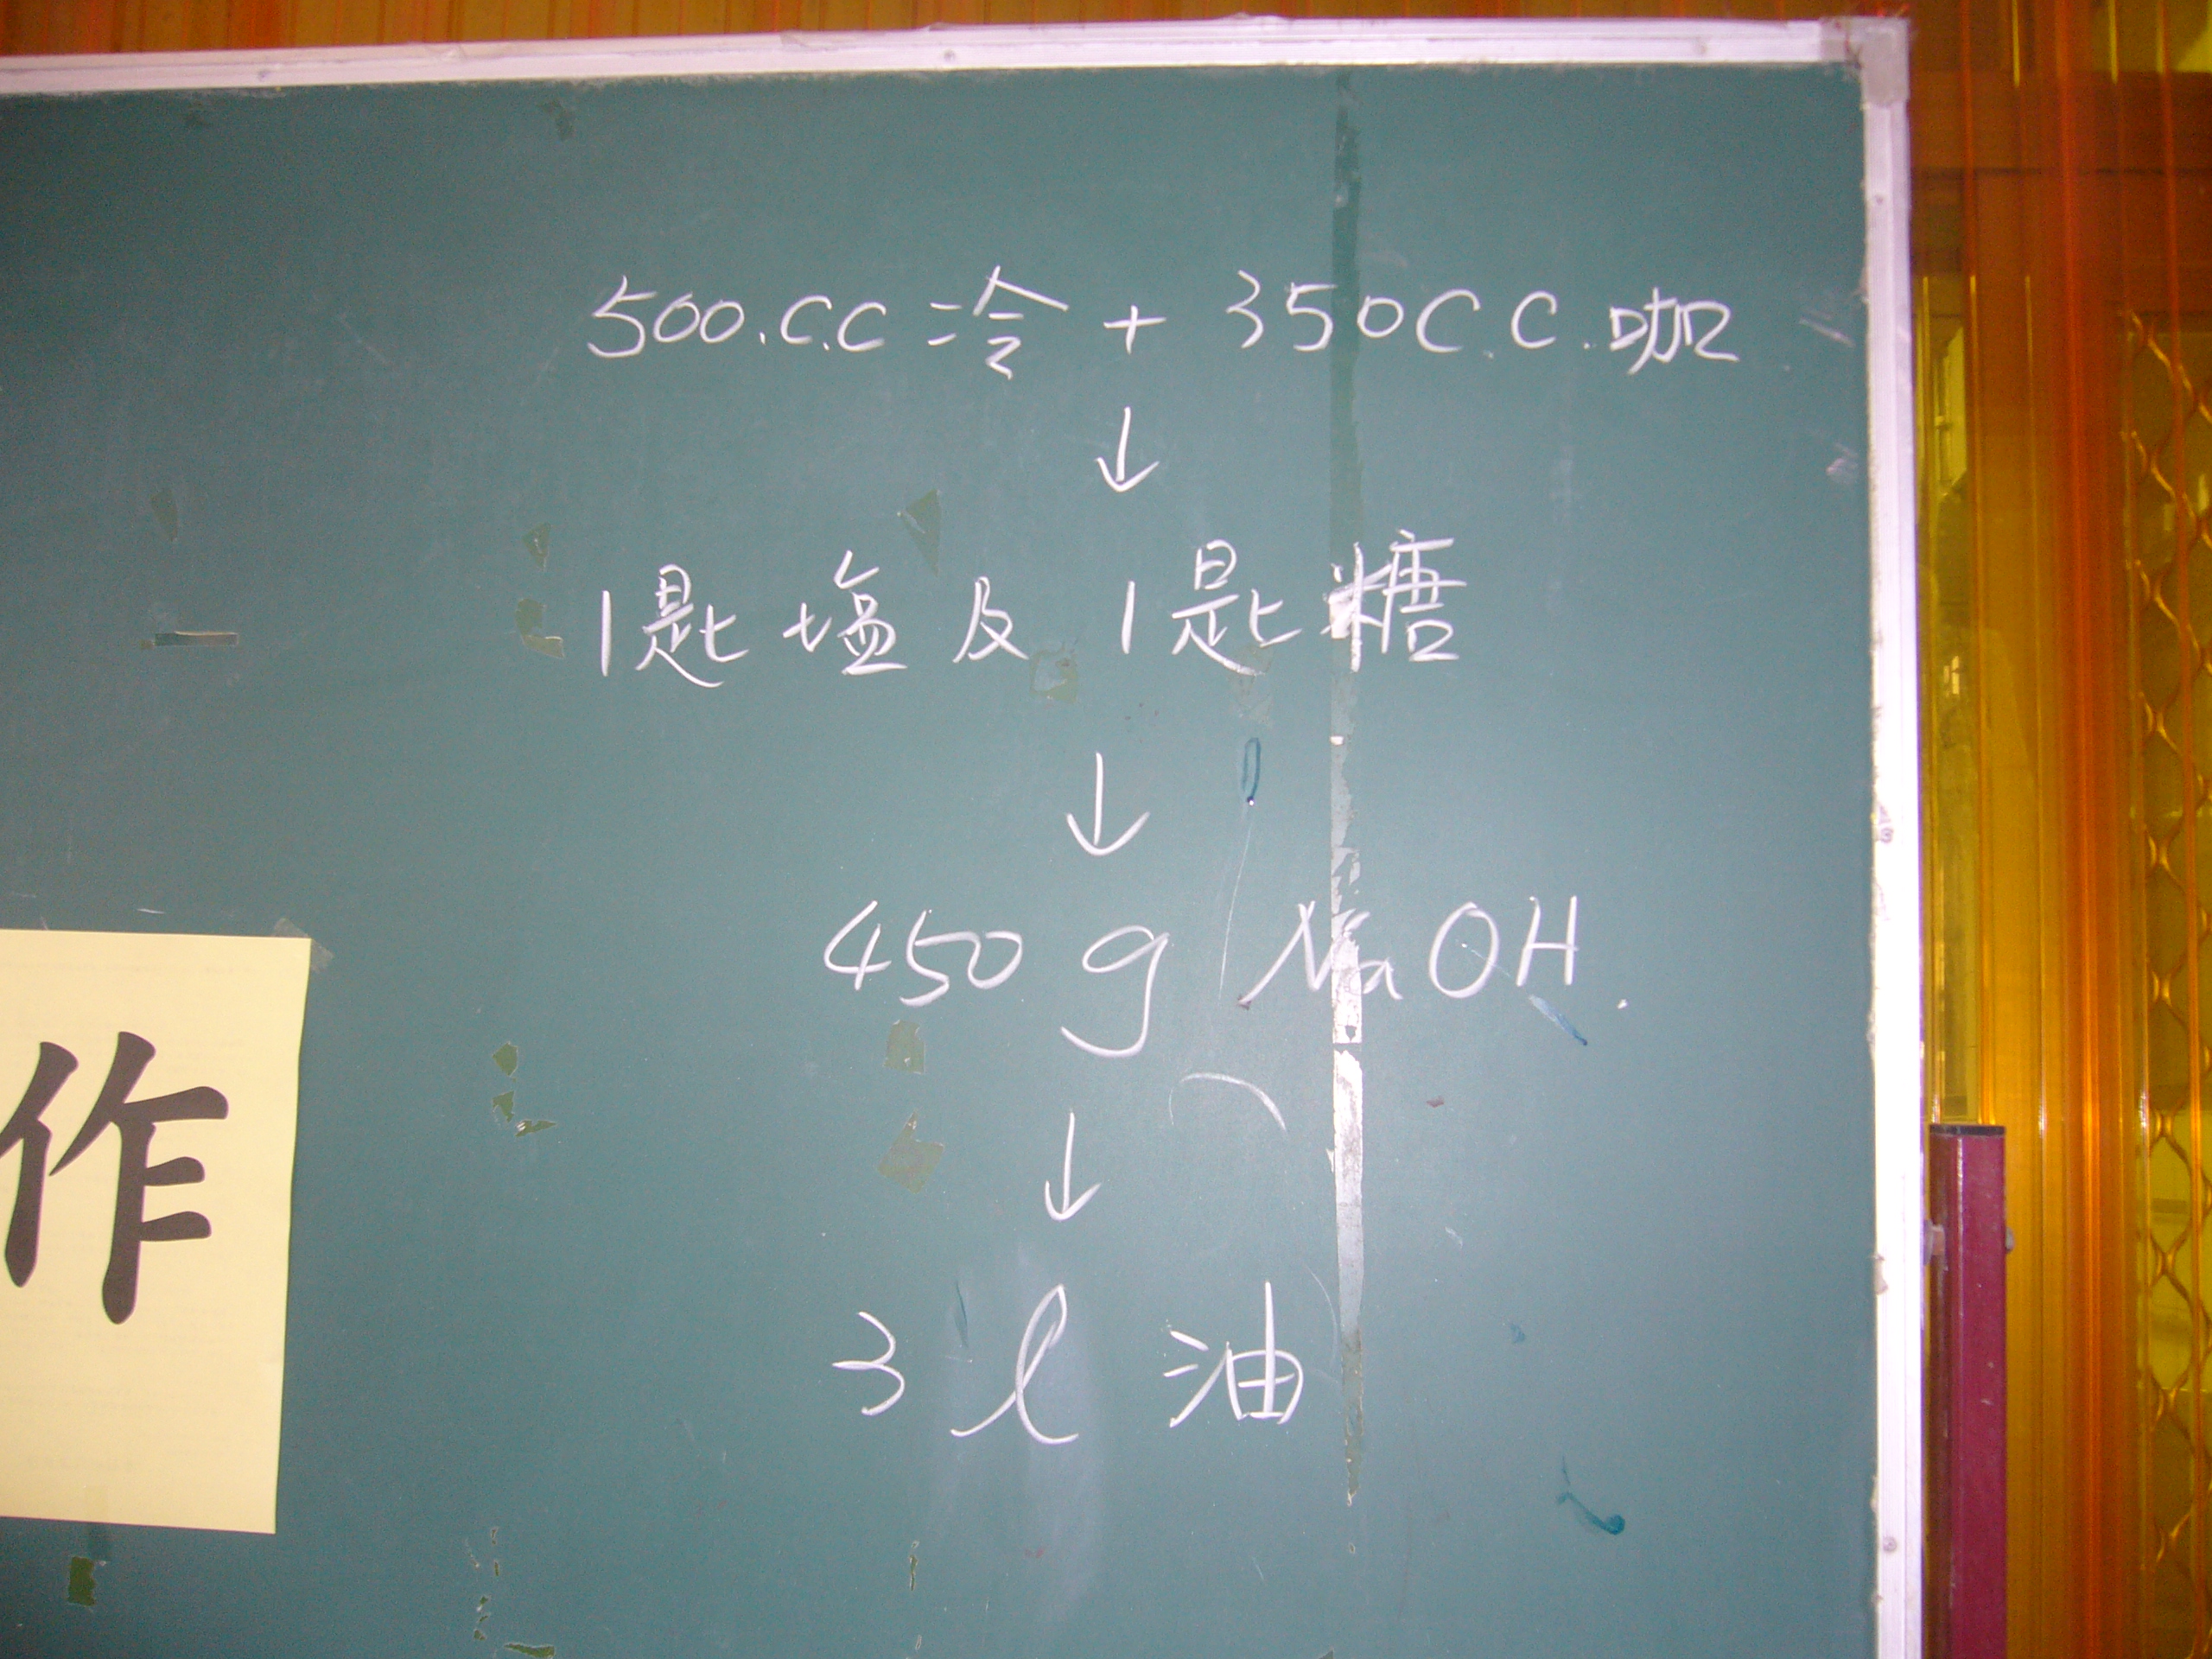 500.C.C冷 + 350C.C.咖
↓
1匙塩及1匙糖
↓
450g NaOH.
↓
3ℓ油
作